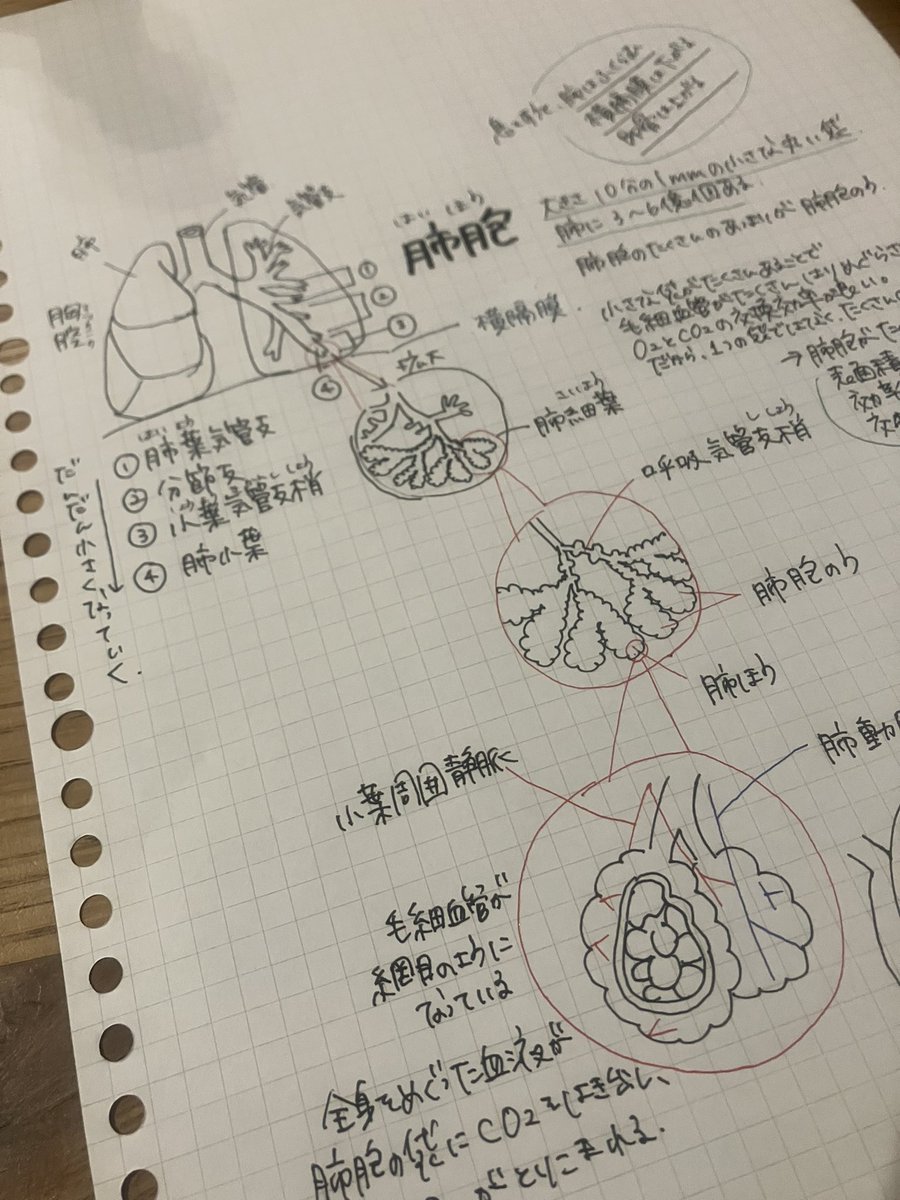 息をすって、肺はふくらみ
横隔膜は下がる
大きさ 10分の1mmの小さな丸い袋
肺に3〜6億個ある
肺胞のたくさんのあつまりが肺胞のう
小さな袋がたくさんあることで
毛細血管がたくさんはりめぐらさ
O₂とCO₂の交換効率が良い。
だから、1つの袋ではなく、たくさんの
→肺胞がた
表面積
効率
はい ほう
肺胞
気管
気管支
肺
胸
腔
①
②
③
④
横隔膜
拡大
さいよう
肺細葉
ししょう
呼吸気管支梢
はい よう
①肺葉気管支
②分節支
ししょう
③小葉気管支梢
④肺小葉
だんだん小さくなっていく.
肺胞のう
肺ほう
小葉周囲静脈
肺動
毛細血管が
網目のように
なっている
全身をめぐった血液が
肺胞の袋にCO₂をはき出し、
がとりこまれる.